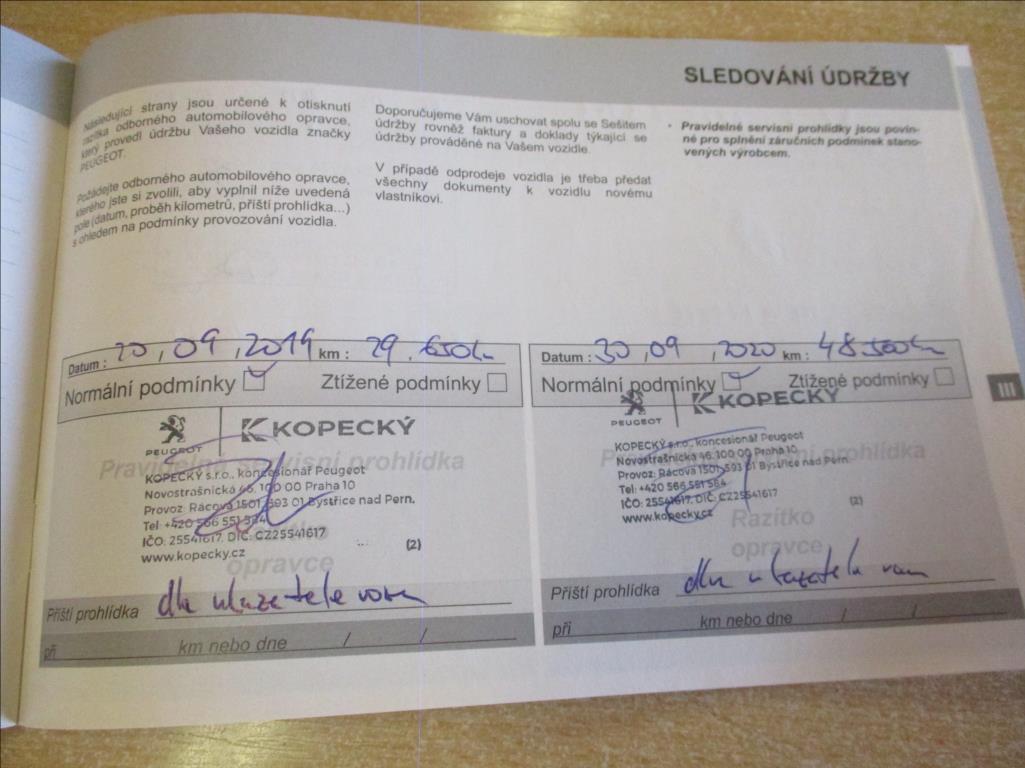 SLEDOVÁNÍ ÚDRŽBY
Následující strany jsou určené k otisknutí
razítka odborného automobilového opravce,
který provedl údržbu Vašeho vozidla značky
PEUGEOT.
Požádejte odborného automobilového opravce,
kterého jste si zvolili, aby vyplnil níže uvedená
pole (datum, proběh kilometrů, příští prohlídka...)
s ohledem na podmínky provozování vozidla.
Doporučujeme Vám uschovat spolu se Sešitem
údržby rovněž faktury a doklady týkající se
údržby prováděné na Vašem vozidle.
V případě odprodeje vozidla je třeba předat
všechny dokumenty k vozidlu novému
vlastníkovi.
• Pravidelné servisní prohlídky jsou povin-
né pro splnění záručních podmínek stano-
vených výrobcem.
Datum : 20, 09, 2019 km : 29.650km
Normální podmínky Ztížené podmínky
PEUGEOT
KOPECKÝ
Pravidelná servisní prohlídka
KOPECKÝ s.r.o., koncesionář Peugeot
Novostrašnická 46, 100 00 Praha 10
Provoz: Rácova 1501, 593 01 Bystřice nad Pern.
Tel: +420 566 551 584
IČO: 25541617, DIČ: CZ25541617
www.kopecky.cz
(2)
opravce
Příští prohlídka dle ukazatele vozu
při km nebo dne / /
Datum : 30, 09, 2020 km : 48.500km
Normální podmínky Ztížené podmínky
PEUGEOT
KOPECKÝ
KOPECKÝ s.r.o., koncesionář Peugeot
Novostrašnická 46, 100 00 Praha 10
Provoz: Rácova 1501, 593 01 Bystřice nad Pern.
Tel: +420 566 551 584
IČO: 25541617, DIČ: CZ25541617
www.kopecky.cz
(2)
Razítko
opravce
Příští prohlídka dle ukazatele vozu
při km nebo dne / /
III